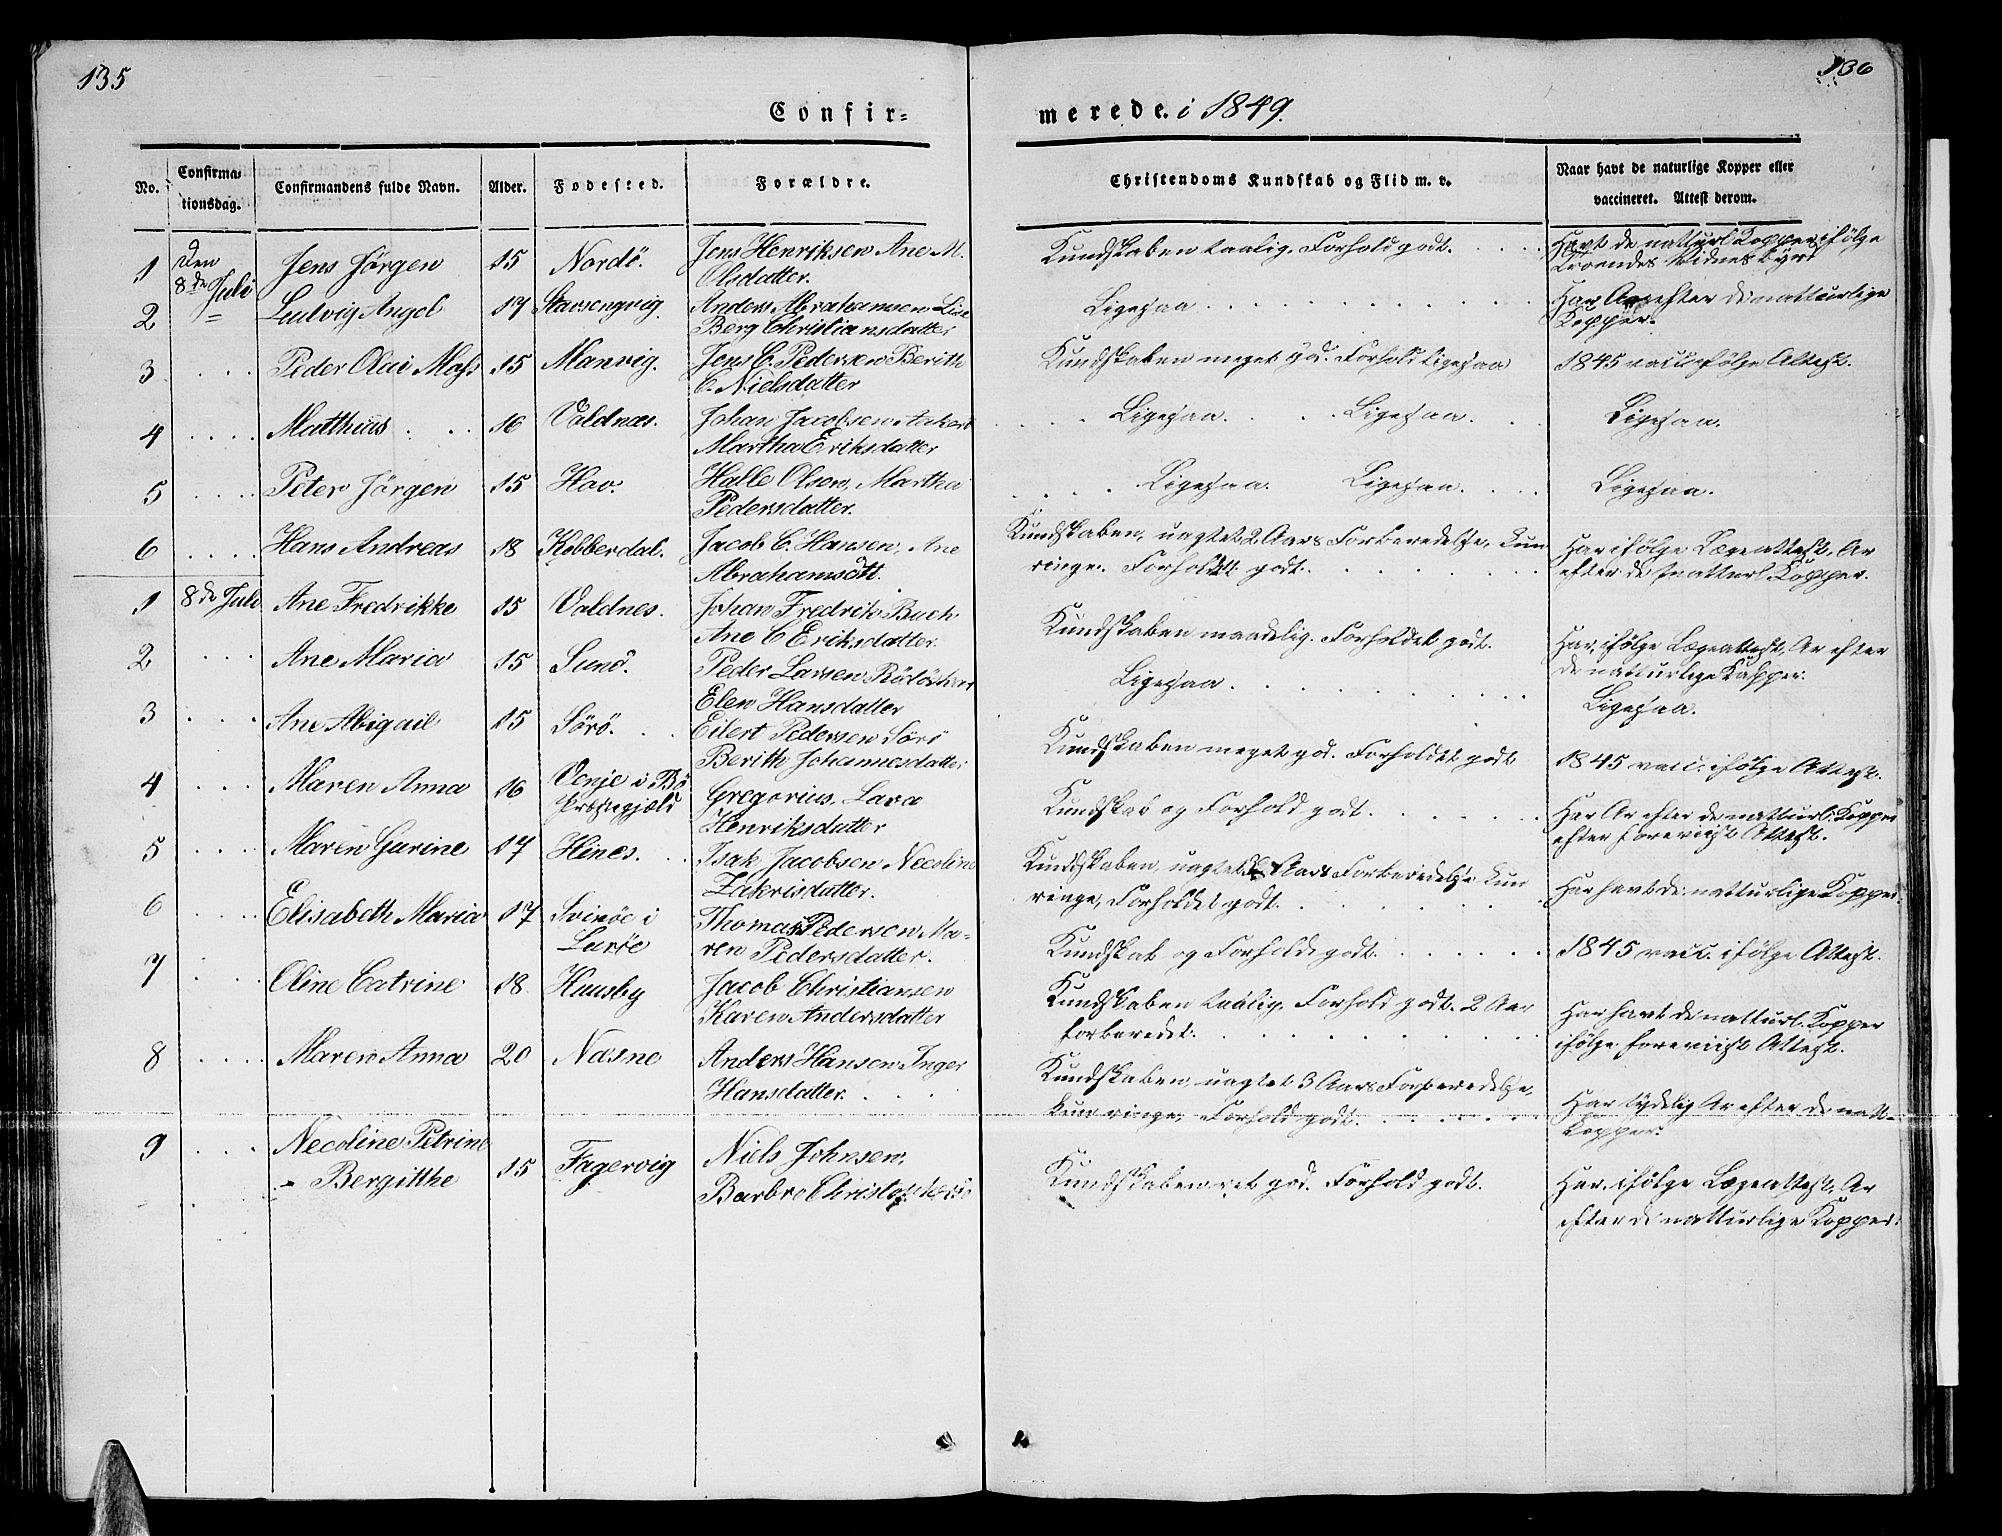 135
136
Confir=
merede. i 1849.
No.
Confirma=
tionsdag.
Confirmandens fulde Navn.
Alder.
Fødested.
Forældre.
Christendoms Kundskab og Flid m. v.
Naar havt de naturlige Kopper eller
vaccineret. Attest derom.
1 Den 8de Juli Jens Jörgen 15 Nordö. Jens Henriksen Ane M.
Olsdatter.
Kundskaben taalig. Forhold godt.
Havt de natturl Kopper ifölge
Troendes Vidnesbyrd
2 = Ludvig Angel 17 Anders Abrahamsen Lise
Berg Christiansdatter
Ligesaa
Har Ar efter de natturlige
Kopper.
3 Peder Olai Mass 15 Manvig. Jens C. Pedersen Berith
C. Nielsdatter
Kundskaben meget god. Forhold Ligesaa
1845 vacc ifölge Attest.
4 Matthias 16 Valdnæs. Johan Jacobsen
Martha Eriksdatter
Ligesaa. Ligesaa.
Ligesaa.
5 Peter Jörgen 15 Hav. Halle Olsen, Martha
Pedersdatter.
Ligesaa. Ligesaa.
Ligesaa.
6 Hans Andreas 18 Kobberdal. Jacob C. Hansen, Ane
Abrahamsdtt.
Kundskaben, uagtet 2 Aars Forberedelse, kun
ringe. Forholdet godt.
Har ifölge Lægeattest, Ar
efter de natturl Kopper.
1 8de Juli Ane Fredrikke 15 Valdnes. Johan Fredrik Buch
Ane C Eriksdatter.
Kundskaben maadelig. Forholdet godt.
Har, ifölge Lægeattest, Ar efter
de natturlige Kopper.
2 Ane Maria 15 Sund. Peder Larsen
Elen Hansdatter
Ligesaa.
Ligesaa.
3 Ane Abigail 15 Sörö. Eilert Pedersen Sörö
Berith Johannesdatter
Kundskaben meget god. Forholdet godt
1845 vacc. ifölge Attest.
4 Maren Anna 16 Venje i Bö
Præstegjæld
Gregorius, Lava
Henriksdatter
Kundskab og Forhold godt.
Har Ar efter de natturl. Kopper
efter foreviist Attest.
5 Maren Gurine 17 Hines. Isak Jacobsen Necoline
Zakrisdatter.
Kundskaben, uagtet Aars Forberedelse kun
ringe, Forholdet godt.
Har havt de natturlige Kopper.
6 Elisabeth Maria 17 Svinöe i
Luröe
Thomas Pedersen, Ma-
ren Pedersdatter.
Kundskab og Forhold godt.
1845 vacc. ifölge Attest.
7 Oline Catrine 18 Huusby Jacob Christiansen
Karen Andersdatter
Kundskaben taalig, Forhold godt. 2 Aar
forberedet.
Har havt de natturl. Kopper
ifölge foreviist Attest.
8 Maren Anna 20 Næsne Anders Hansen Inger
Hansdatter.
Kundskaben, uagtet 3 Aars Forberedelse,
kun ringe, Forhold godt.
Har tydelig Ar efter de natt-
Kopper.
9 Necoline Petrine
- Bergitthe
15 Fagervig Niels Johnsen,
Barbro
Kundskaben ret god. Forhold godt.
Har. ifölge Lægeattest, Ar
efter de natturlige Kopper.